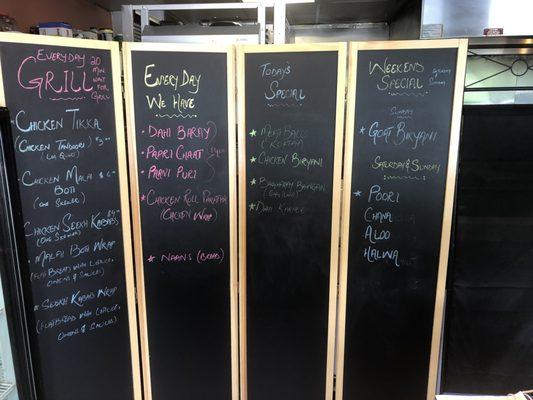 EVERYDAY
GRILL
20
MIN
WAIT
FOR
GRILL
CHICKEN TIKKA
(CHICKEN TANDOORI)
(LEG QUARTER)
CHICKEN MALAI $6
BOTI
(ONE SKEWER)
CHICKEN SEEKH KABABS
(ONE SKEWER)
MALAI BOTI WRAP
(FLATBREAD WITH LETTUCE,
ONIONS & SAUCES)
SEEKH KABAB WRAP
(FLATBREAD WITH LETTUCE,
ONIONS & SAUCES)
EVERYDAY
WE HAVE
DAHI BARAY
PAPRI CHAAT
PAANI PURI
CHICKEN ROLL PARATHA
(CHICKEN WRAP)
* NAANS (BREAD)
TODAY'S
SPECIAL
* CHICKEN BIRYANI
* BAGHARAY BAINGAN
WEEKEND SATURDAY
SPECIAL & SUNDAY
SUNDAY
* GOAT BIRYANI
SATERDAY & SUNDAY
* POORI
CHANA
ALOO
HALWA